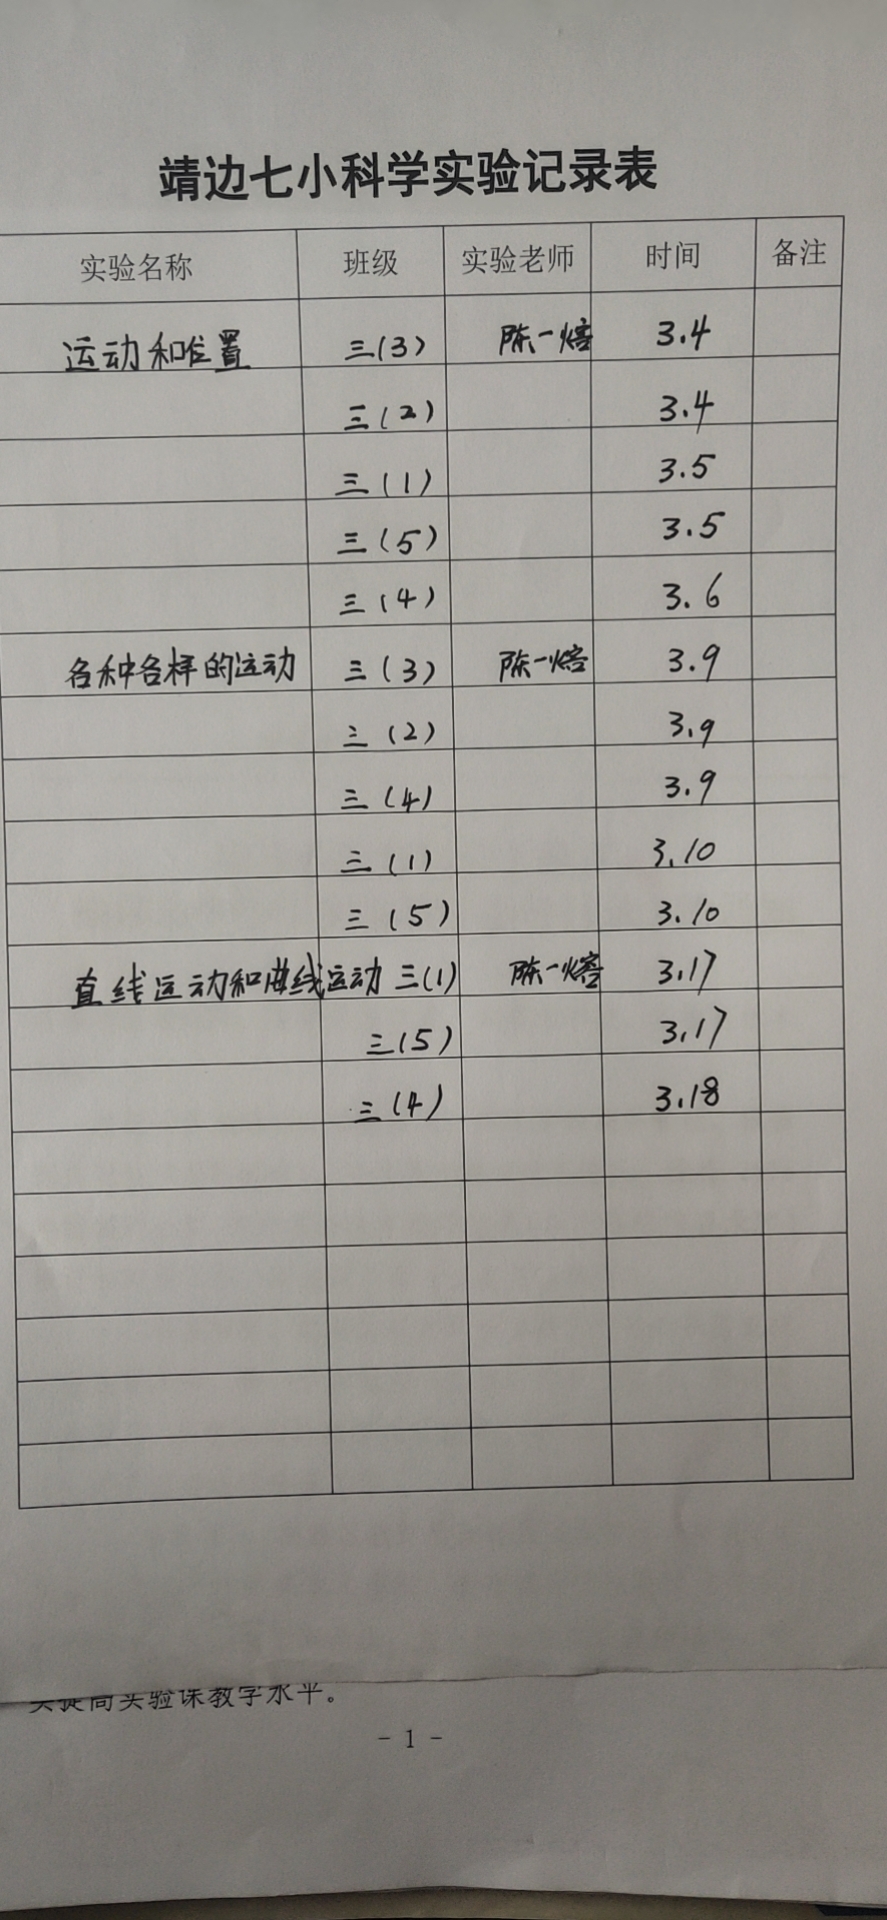 靖边七小科学实验记录表
实验名称 班级 实验老师 时间 备注
运动和位置 三(3) 陈一熔 3.4
三(2) 3.4
三(1) 3.5
三(5) 3.5
三(4) 3.6
各种各样的运动 三(3) 陈一熔 3.9
三(2) 3.9
三(4) 3.9
三(1) 3.10
三(5) 3.10
直线运动和曲线运动 三(1) 陈一熔 3.17
三(5) 3.17
三(4) 3.18
提高实验课教学水平。
- 1 -